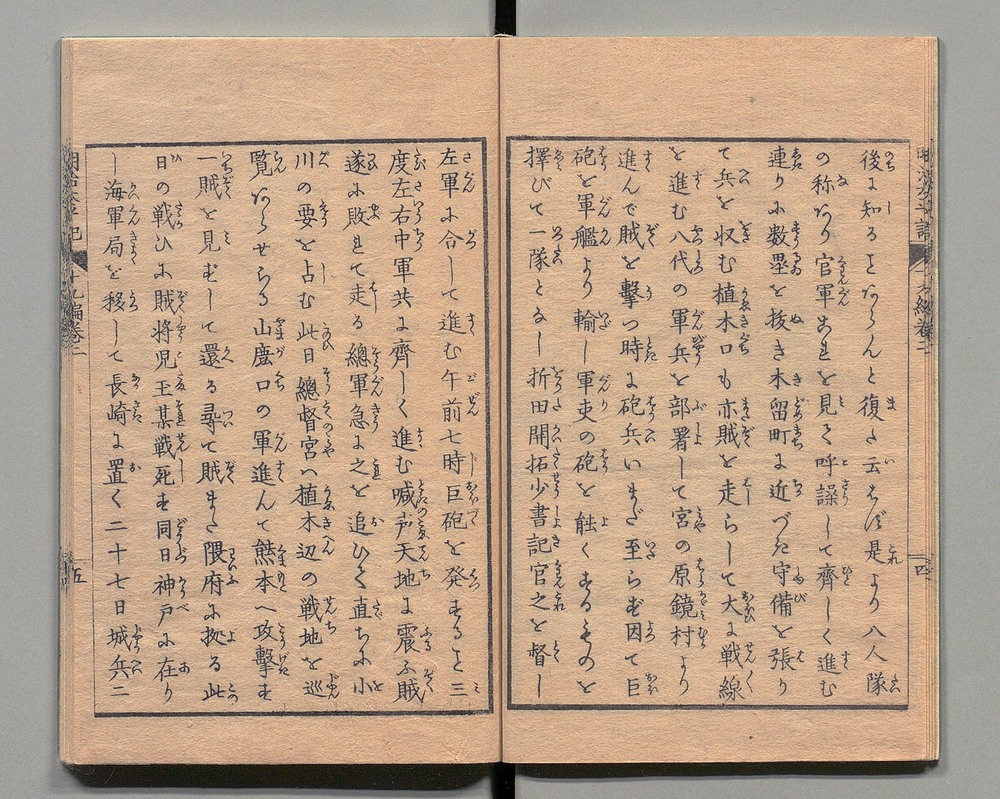 後に知ることならんと復た云さば是より八人隊
の称あり官軍これを見て呼譟して齊しく進む
連りに数塁を抜き木留町に近づき守備を張り
て兵を収む植木口も亦賊を走らして大に戦線
を進む八代の軍兵を部署して宮の原鏡村より
進んで賊を撃つ時に砲兵いまだ至らず因て巨
砲を軍艦より輸し軍吏の砲を能くするものを
擇びて一隊となし折田開拓少書記官之を督し
左軍に合して進む午前七時巨砲を発すること三
度左右中軍共に齊しく進む喊声天地に震ふ賊
遂に敗れて走る總軍急に之を追ひて直ちに小
川の要を占む此日總督宮ハ植木辺の戦地を巡
覧あらせらる山鹿口の軍進んで熊本へ攻撃す
一賊を見ずして還る尋て賊また隈府に拠る此
日の戦ひに賊将児玉某戦死す同日神戸に在り
し海軍局を移して長崎に置く二十七日城兵二
明治太平記
十九編巻二
五
四